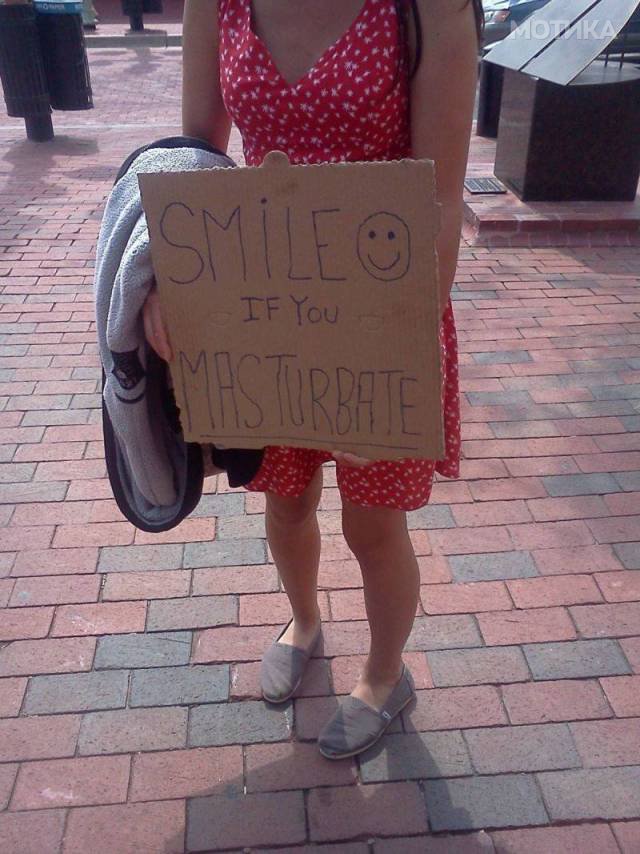 МОТИКА
SMiLE
IF YOU
MASTURBATE